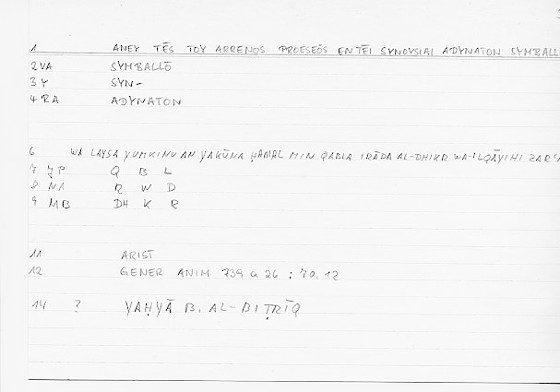 1 ANEY TĒS TOY ARRENOS PROESEŌS EN TĒI SYNOYSIAI ADYNATON SYMBALL
2 VA SYMBALLŌ
3 Y SYN-
4 RA ADYNATON
6 WA LAYSA YUMKINU AN YAKŪNA ḤAMAL MIN QABLA IRĀDA AL-DHIKR WA-ILQĀYIHI ZAR'
7 YP Q B L
8 NA R W D
9 MB DH K R
11 ARIST
12 GENER ANIM 739 a 26 : 70.12
14 ? YAḤYĀ B. AL-BIṬRĪQ